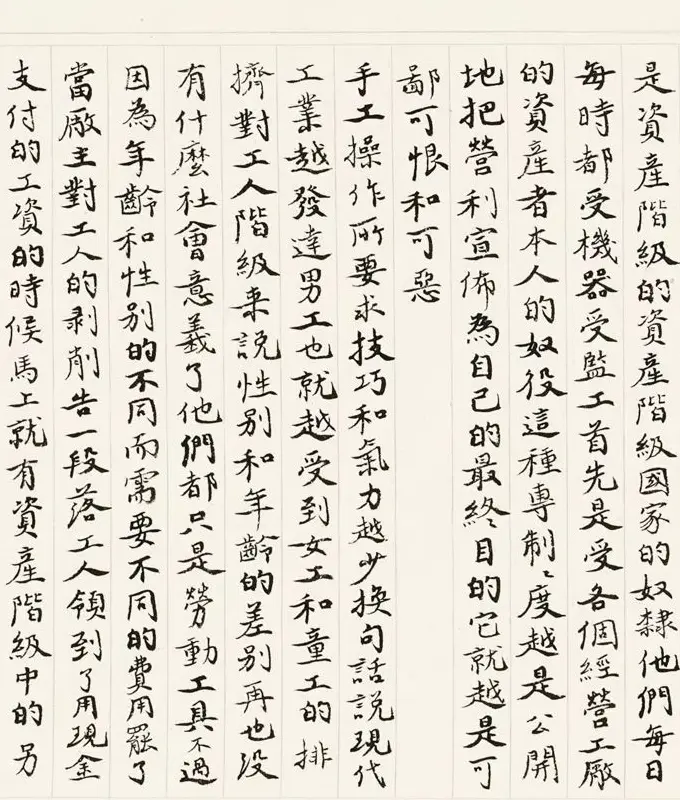 是資產階級的資產階級國家的奴隸他們每日
每時都受機器受監工首先是受各個經營工廠
的資產者本人的奴役這種專制〻度越是公開
地把營利宣佈為自己的最終目的它就越是可
鄙可恨和可惡
手工操作所要求技巧和氣力越少換句話說現代
工業越發達男工也就越受到女工和童工的排
擠對工人階級來說性別和年齡的差別再也没
有什麼社會意義了他們都只是勞動工具不過
因為年齡和性別的不同而需要不同的費用罷了
當廠主對工人的剥削告一段落工人領到了用現金
支付的工資的時候馬上就有資產階級中的另